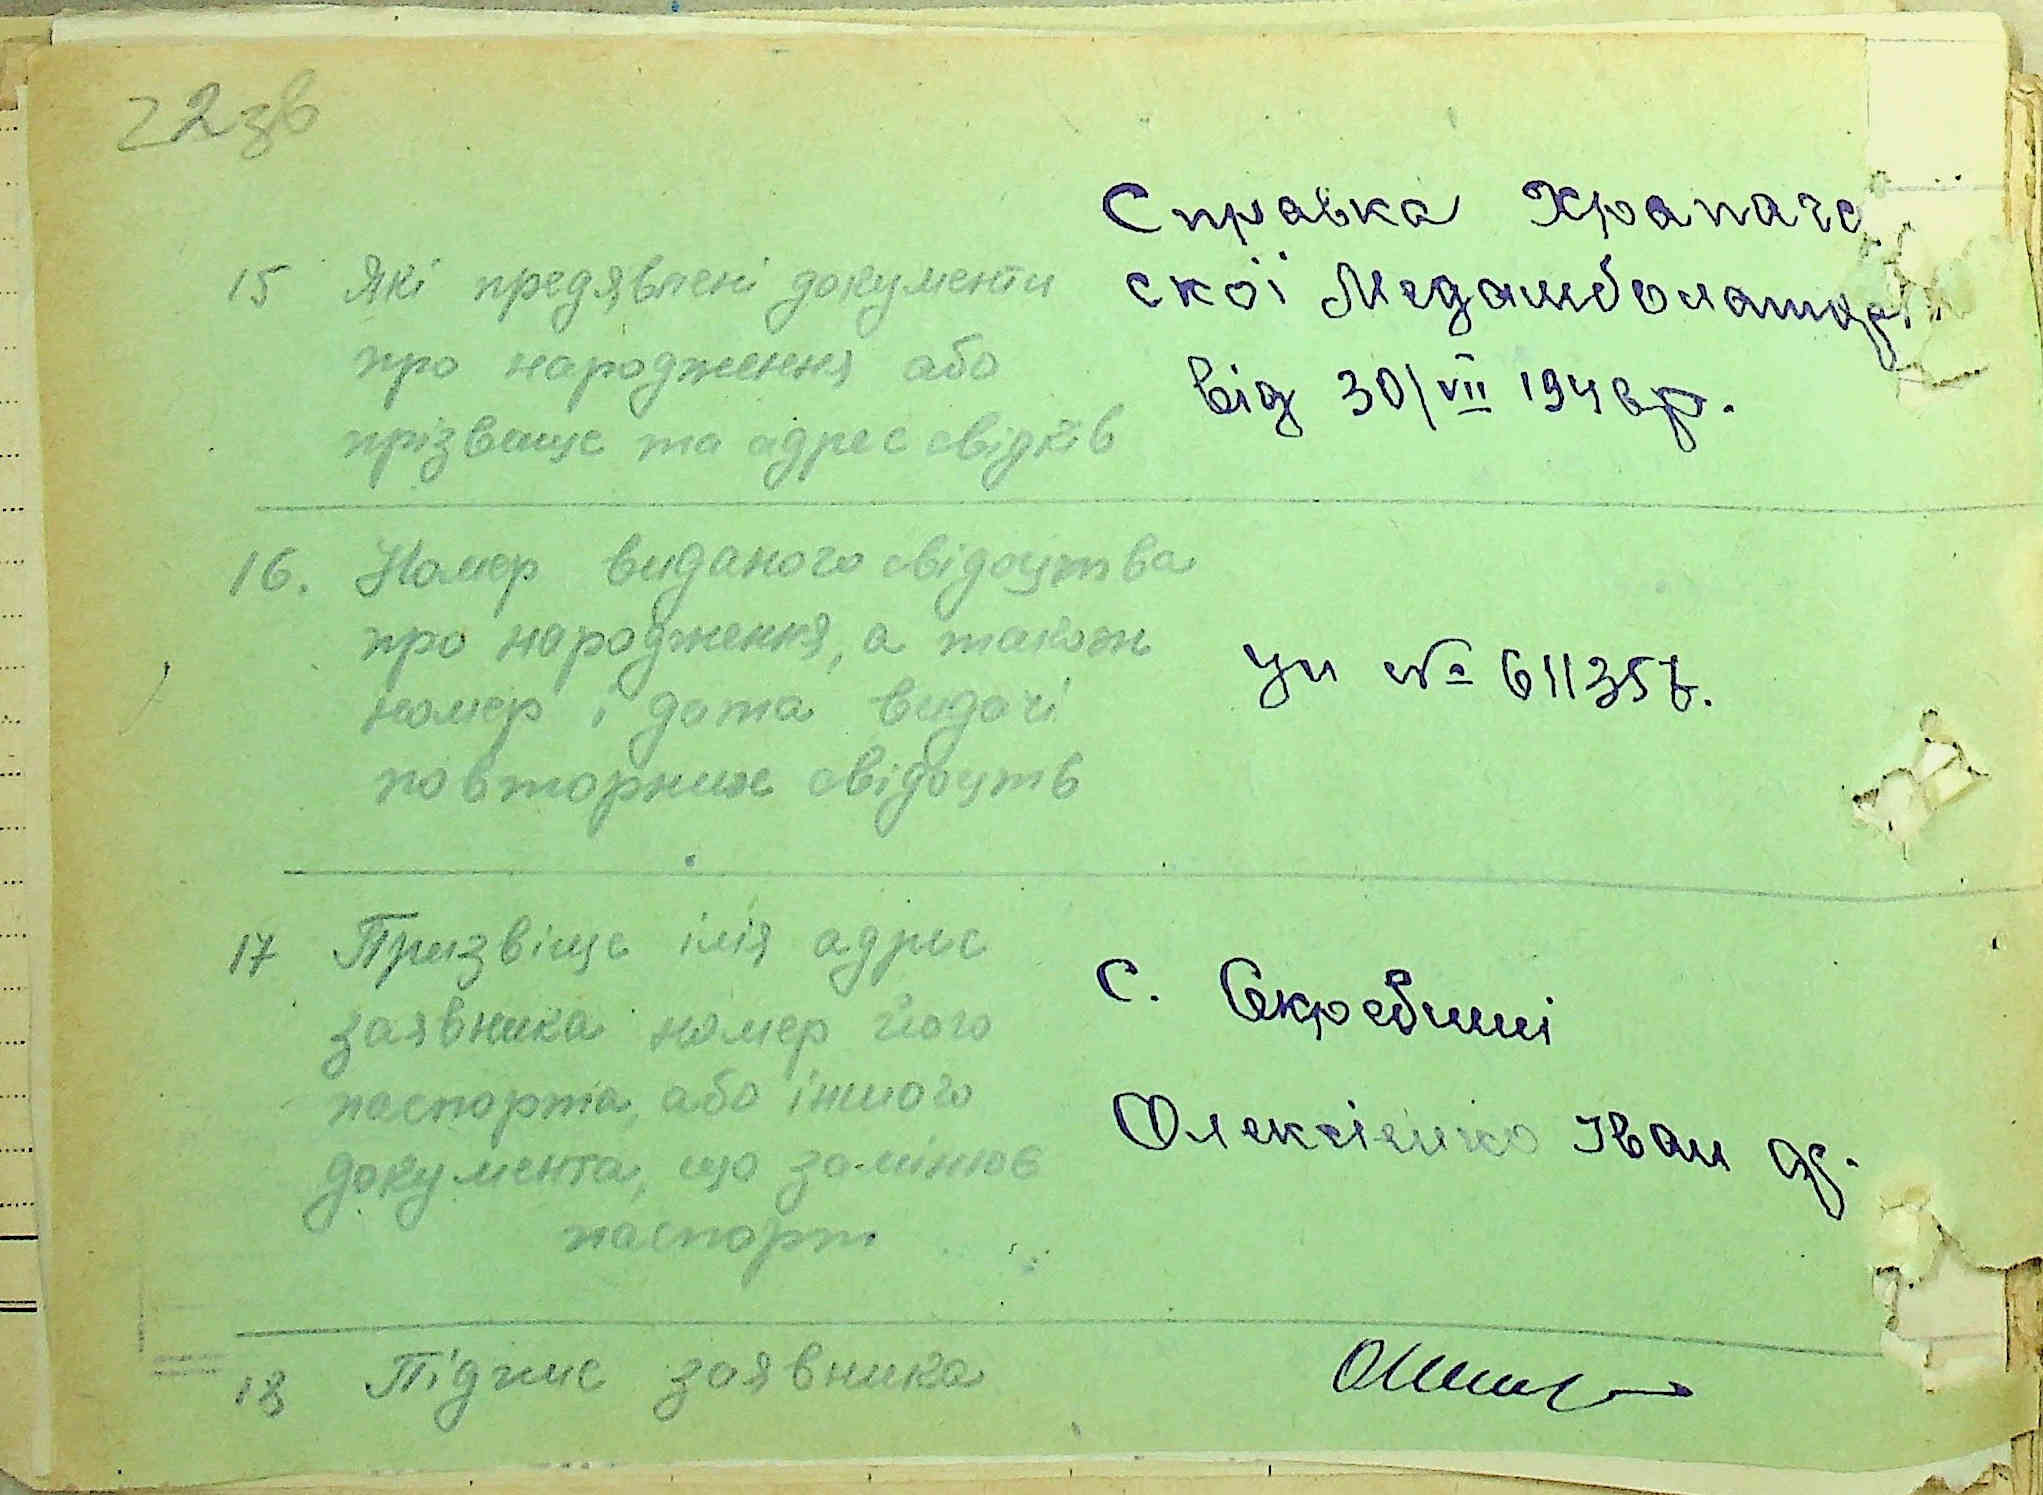 22зв
Справка Храпачв
15 Які предявлені документи
скої Медамбулатор
про народження або
від 30/VII 194 вр.
прізвище та адрес свідків
16. Номер виданого свідоцтва
про народження, а також
УП № 611357.
номер і дата видачі
повторних свідоцтв
17 Призвіще імя адрес
с. Скребиші
заявника номер його
паспорта, або іншого
Олексієнко Іван
документа, що замінює
паспорт
18 Підпис заявника